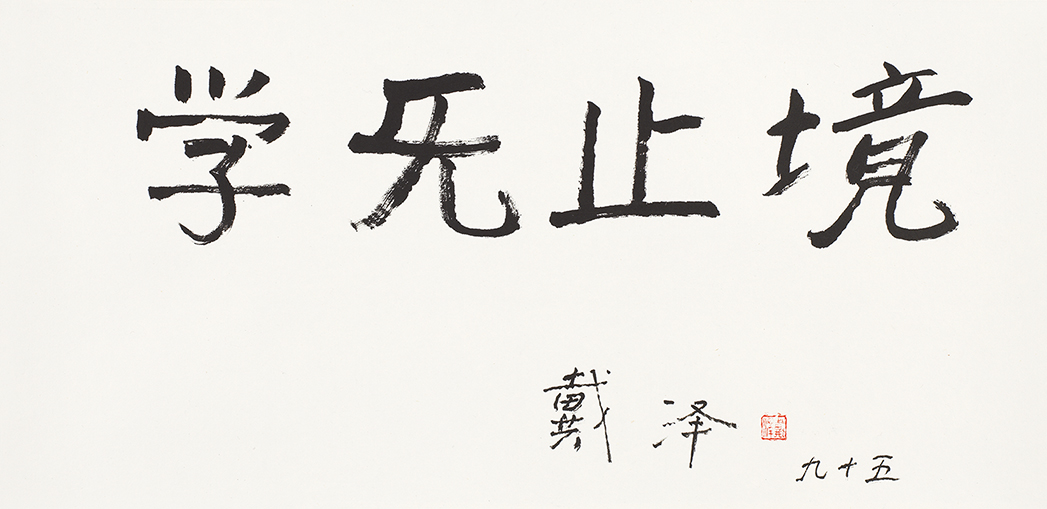 学无止境
戴泽
九十五